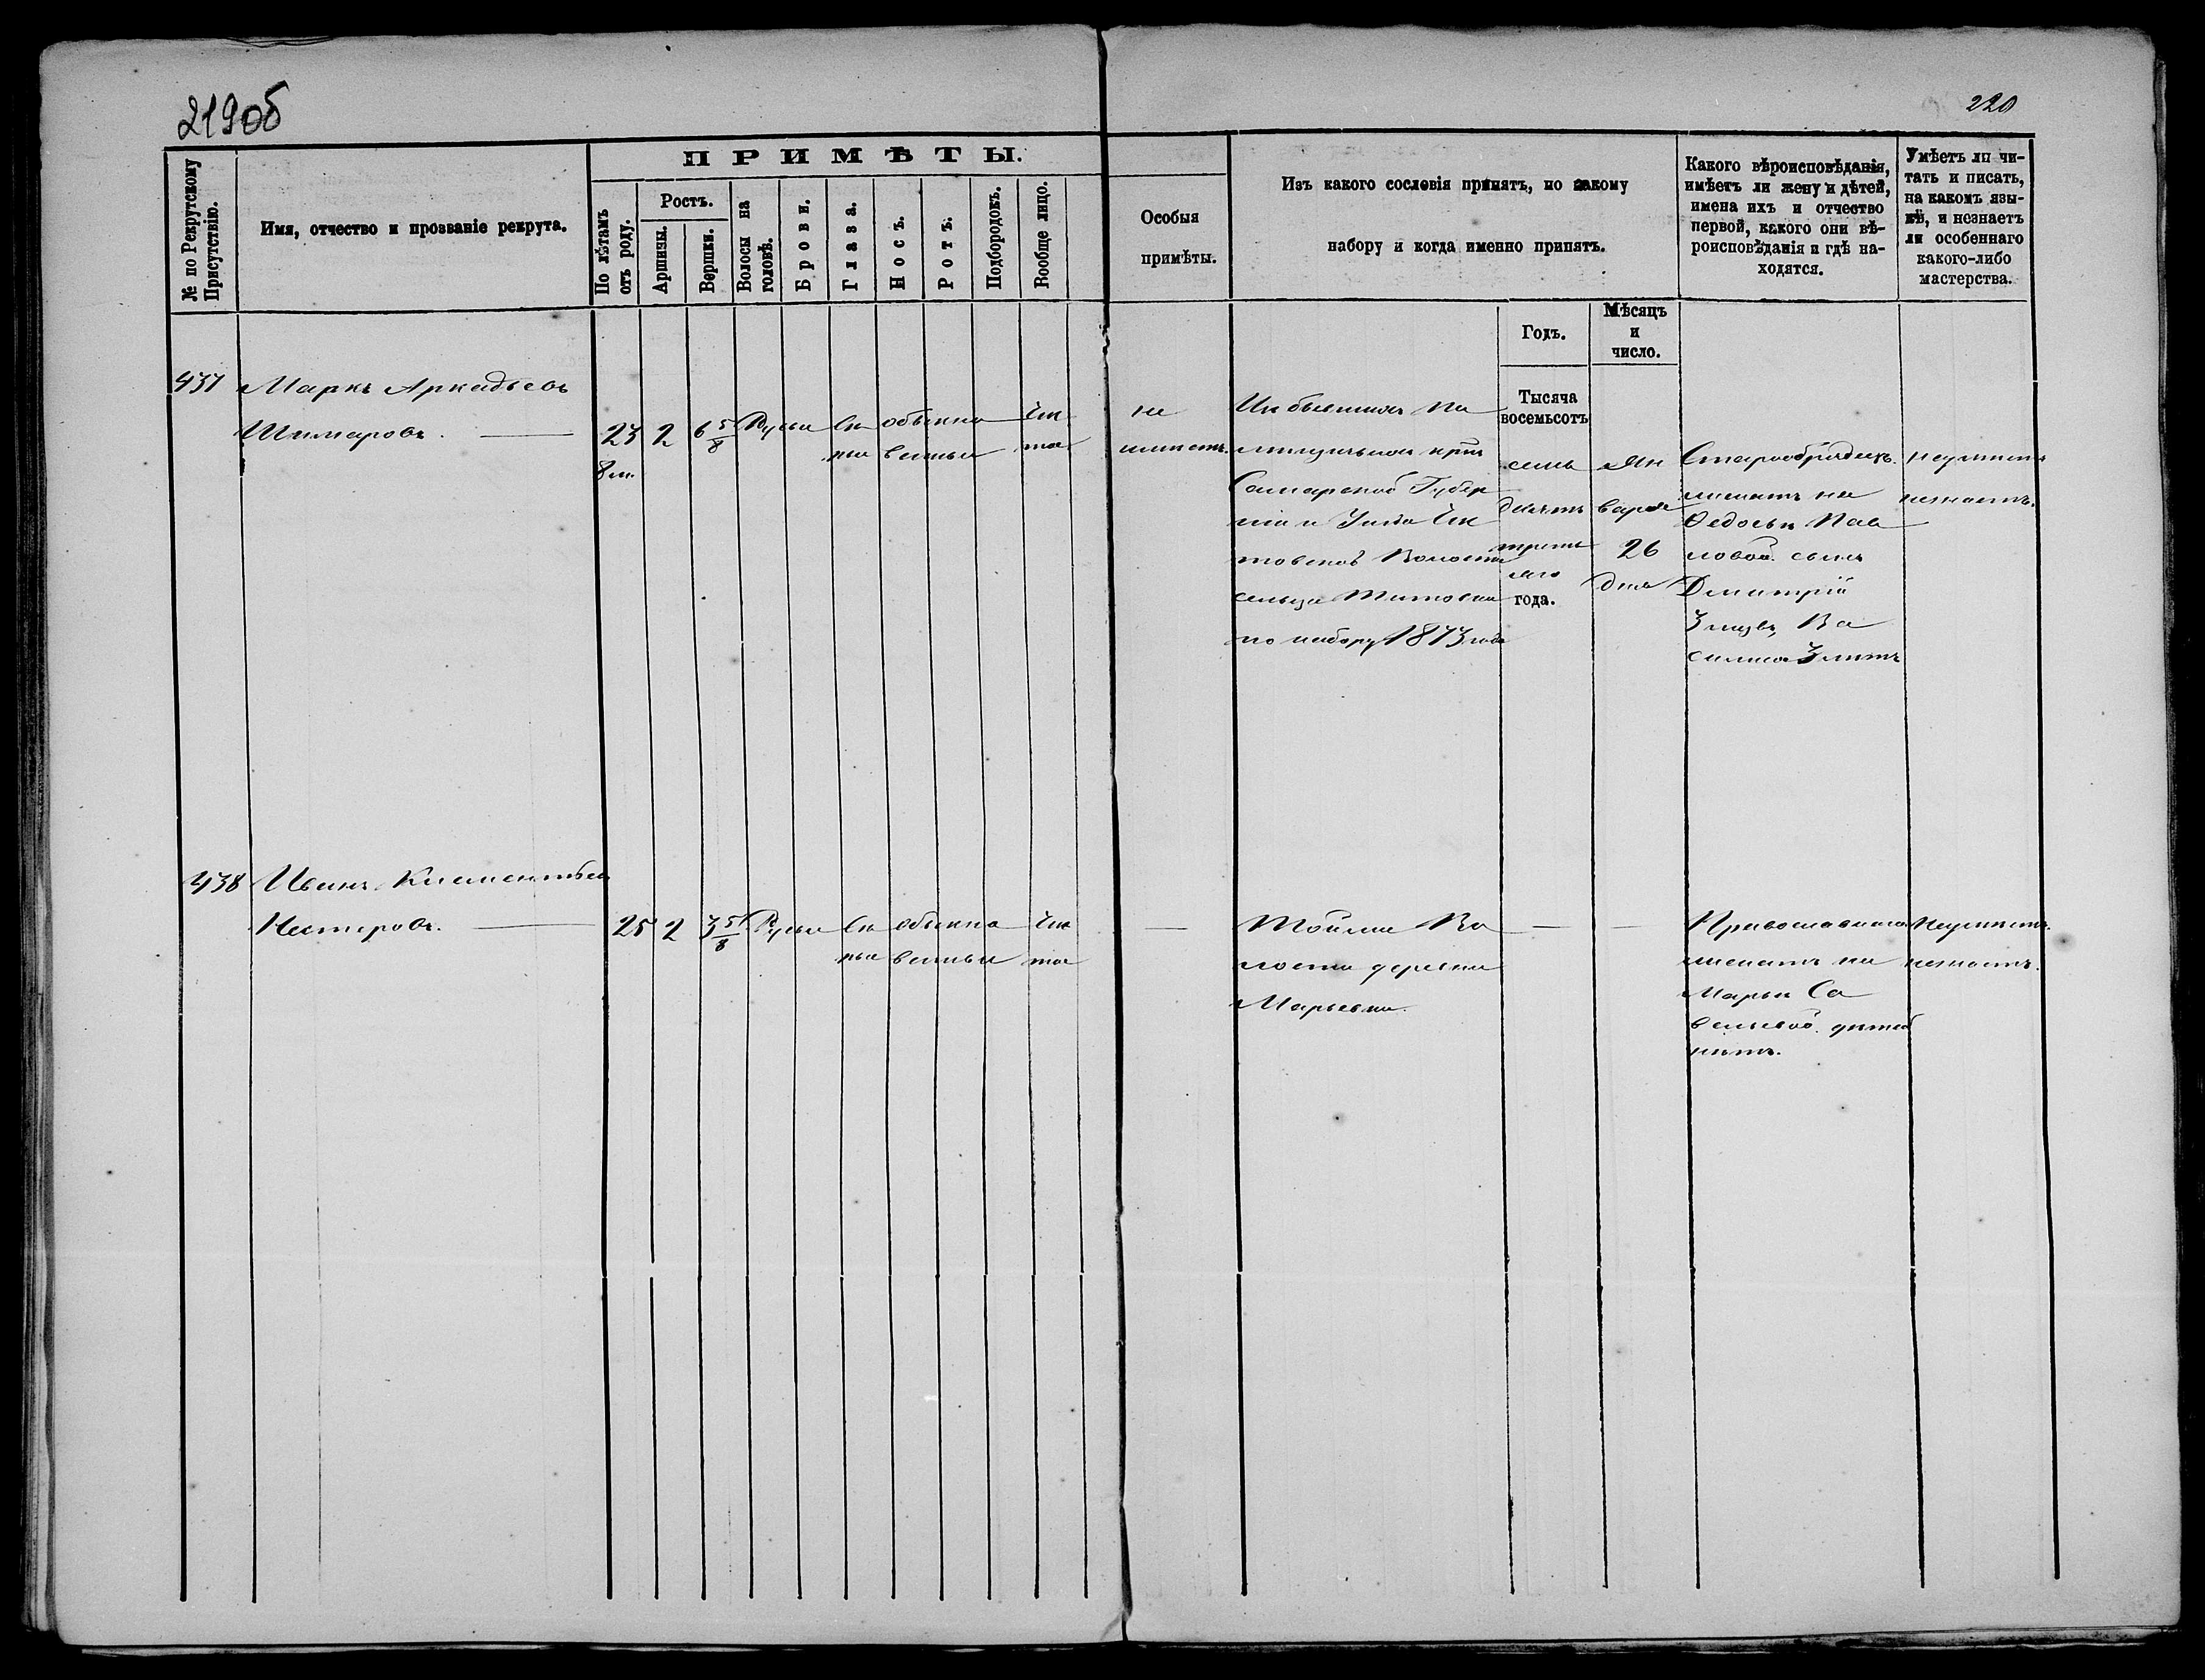 219об
220
№ по Рекрутскому Присутствію.
Имя, отчество и прозваніе рекрута.
ПРИМѢТЫ.
По лѣтамъ отъ роду.
Ростъ.
Аршины.
Вершки.
Волосы на головѣ.
Брови.
Глаза.
Носъ.
Ротъ.
Подбородокъ.
Вообще лицо.
Особыя
примѣты.
Изъ какого сословія принятъ, по какому
набору и когда именно принятъ.
Годъ.
Мѣсяцъ
и
число.
Какого вѣроисповѣданія,
имѣетъ ли жену и дѣтей,
имена ихъ и отчество
первой, какого они вѣ-
роисповѣданія и гдѣ на-
ходятся.
Умѣетъ ли чи-
тать и писать,
на какомъ язы-
кѣ, и незнаетъ
ли особеннаго
какого-либо
мастерства.
437
Маркъ Аркадьевъ
23 2 6 5/8 Русые
8 м.
обыкно
венные
Чис
тое
не
имѣетъ.
Изъ бывшихъ
Самарской Губер
ніи и Уѣзда
Волости
сельца
по набору 1873 года
Тысяча
восемьсотъ
семь
десятъ
третьяго
года.
Ян
варя
26
дня
Старообрядецъ.
женатъ на
Федосьи Пав
ловой. сынъ
Дмитрій
3 мцвъ, Ва
силиса 3 лѣтъ
неумѣетъ
незнаетъ.
438
Иванъ Климентьев
Нестеровъ.
25 2 3 5/8 Русые
обыкно
венные
Чис
тое
Тойже Во
лости деревни
Марьевки.
Православнаго
женатъ на
Марьи Са
вельевой. дѣтей
нѣтъ.
Неумѣетъ.
незнаетъ.